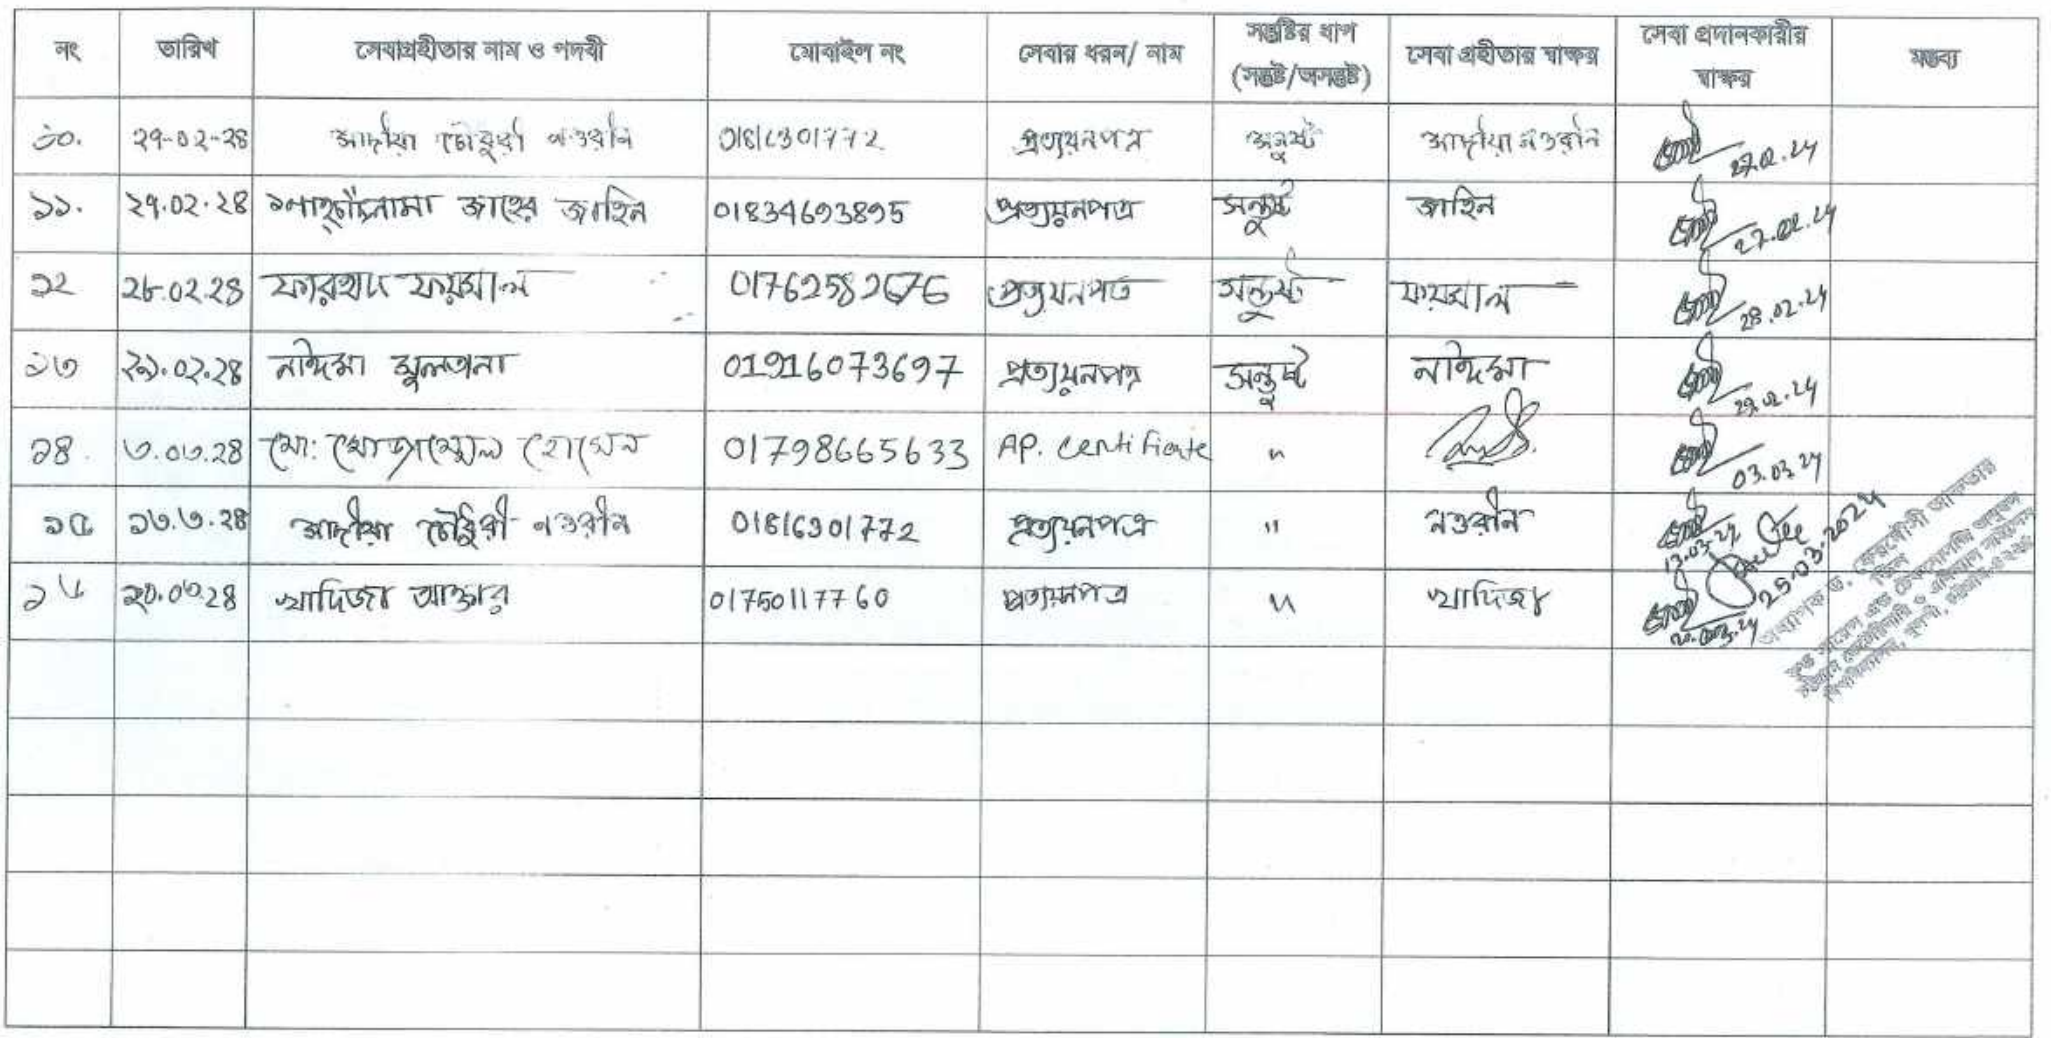 নং তারিখ সেবাগ্রহীতার নাম ও পদবী মোবাইল নং সেবার ধরন/ নাম সন্তুষ্টির ধাপ (সন্তুষ্ট/অসন্তুষ্ট) সেবা গ্রহীতার স্বাক্ষর সেবা প্রদানকারীর স্বাক্ষর মন্তব্য
১০. ২৭-০২-২৪ সাদীয়া চৌধুরী নওরীন 01816301772 প্রত্যয়নপত্র সন্তুষ্ট সাদীয়া নওরীন 27.02.24
১১. ২৭.০২.২৪ জাহের জাহিন 01834693895 প্রত্যয়নপত্র সন্তুষ্ট জাহিন 27.02.24
১২ ২৮.০২.২৪ ফারহাদ ফয়সাল 01762582676 প্রত্যয়নপত্র সন্তুষ্ট ফয়সাল 28.02.24
১৩ ২৯.০২.২৪ নাঈমা সুলতানা 01916073697 প্রত্যয়নপত্র সন্তুষ্ট নাঈমা 29.02.24
১৪. ৩.০৩.২৪ মো: মোজাম্মেল হোসেন 01798665633 AP. Certificate " 03.03.24
১৫ ১৩.৩.২৪ সাদীয়া চৌধুরী নওরীন 01816301772 প্রত্যয়নপত্র " নওরীন 13.03.24
১৬ ২০.০৩.২৪ খাদিজা আক্তার 01750117760 প্রত্যয়নপত্র " খাদিজা 20.03.24
25.03.2024
অধ্যাপক ড. ফেরদৌসী আকতার
ডিন
ফুড সায়েন্স এন্ড টেকনোলজি অনুষদ
চট্টগ্রাম ভেটেরিনারি ও এনিম্যাল সাইন্সেস
বিশ্ববিদ্যালয়, খুলশী, চট্টগ্রাম-৪২২৫